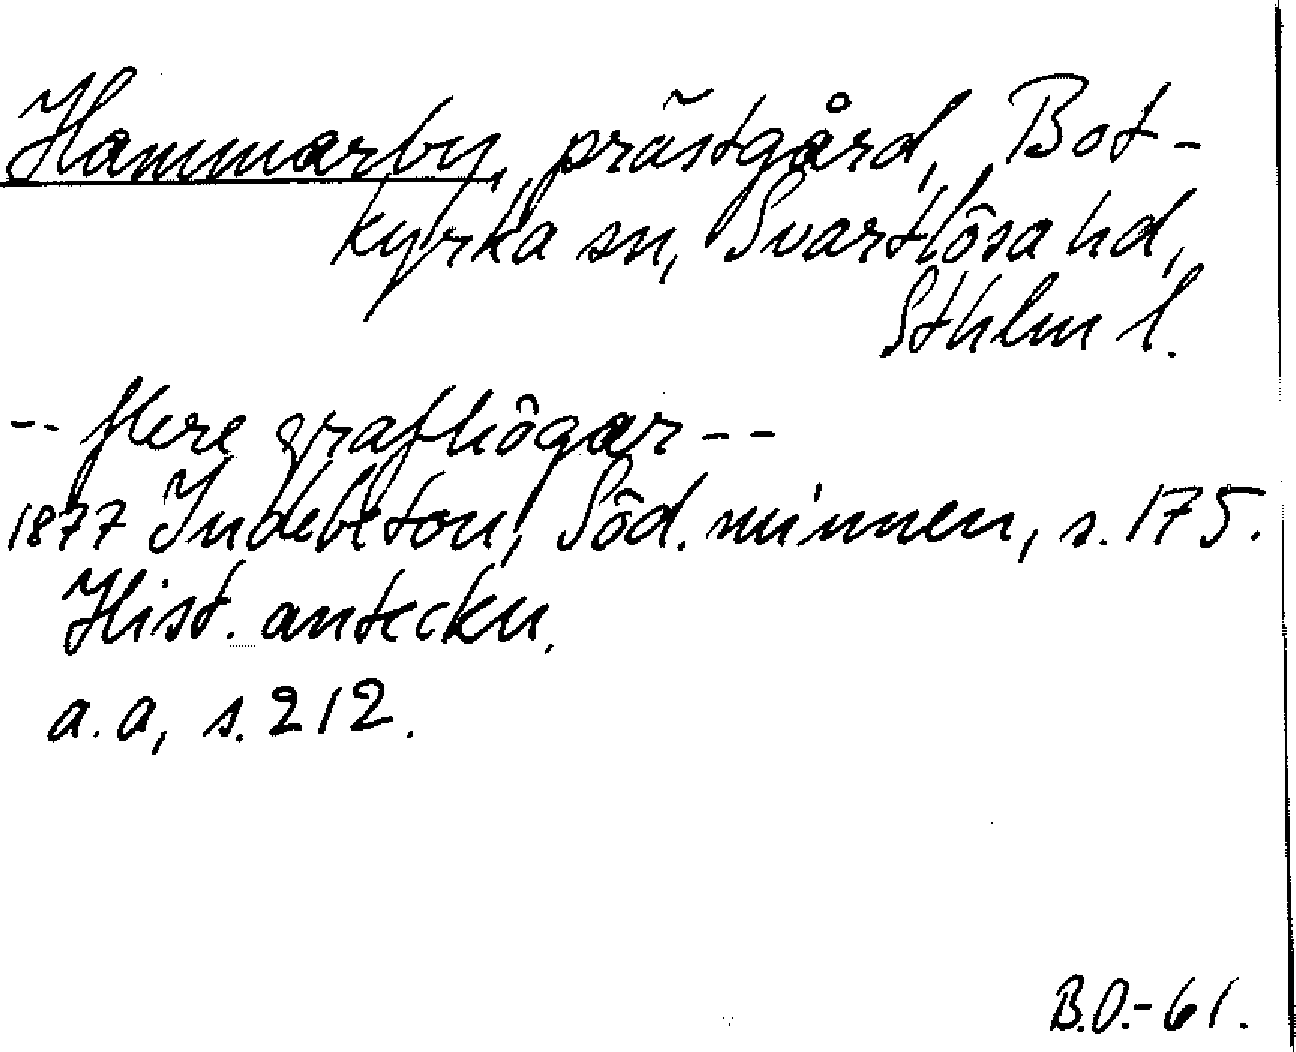 Hammarby, prästgård, Bot-
kyrka sn, Svartlösa hd,
Sthlm l.
-- flere grafhögar --
1877 Indebetou, Söd. minnen, s. 175.
Hist. anteckn.
a. a, s. 212.
B.O.-61.